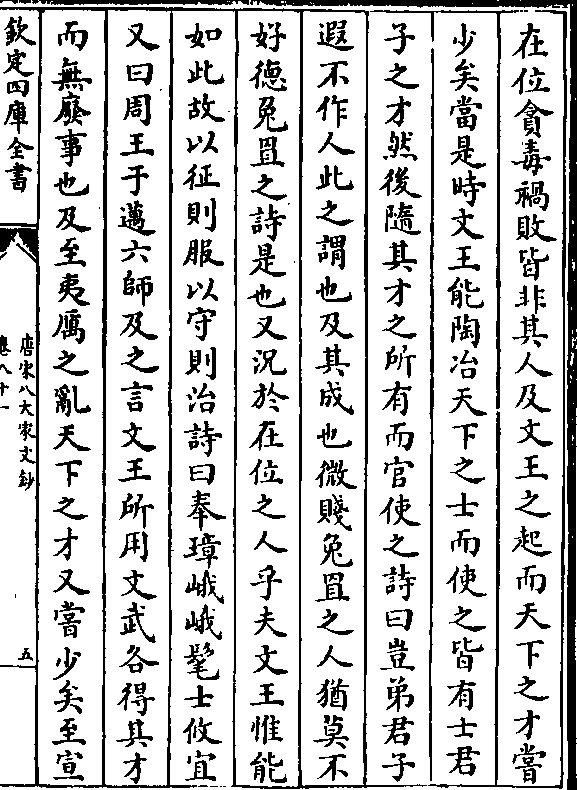 在位貪毒禍敗皆非其人及文王之起而天下之才嘗
少矣當是時文王能陶冶天下之士而使之皆有士君
子之才然後隨其才之所有而官使之詩曰豈弟君子
遐不作人此之謂也及其成也微賤兔罝之人猶莫不
好德兔罝之詩是也又況於在位之人乎夫文王惟能
如此故以征則服以守則治詩曰奉璋峨峨髦士攸宜
又曰周王于邁六師及之言文王所用文武各得其才
而無廢事也及至夷厲之亂天下之才又嘗少矣至宣
欽定四庫全書
唐宋八大家文鈔
卷八十一
五